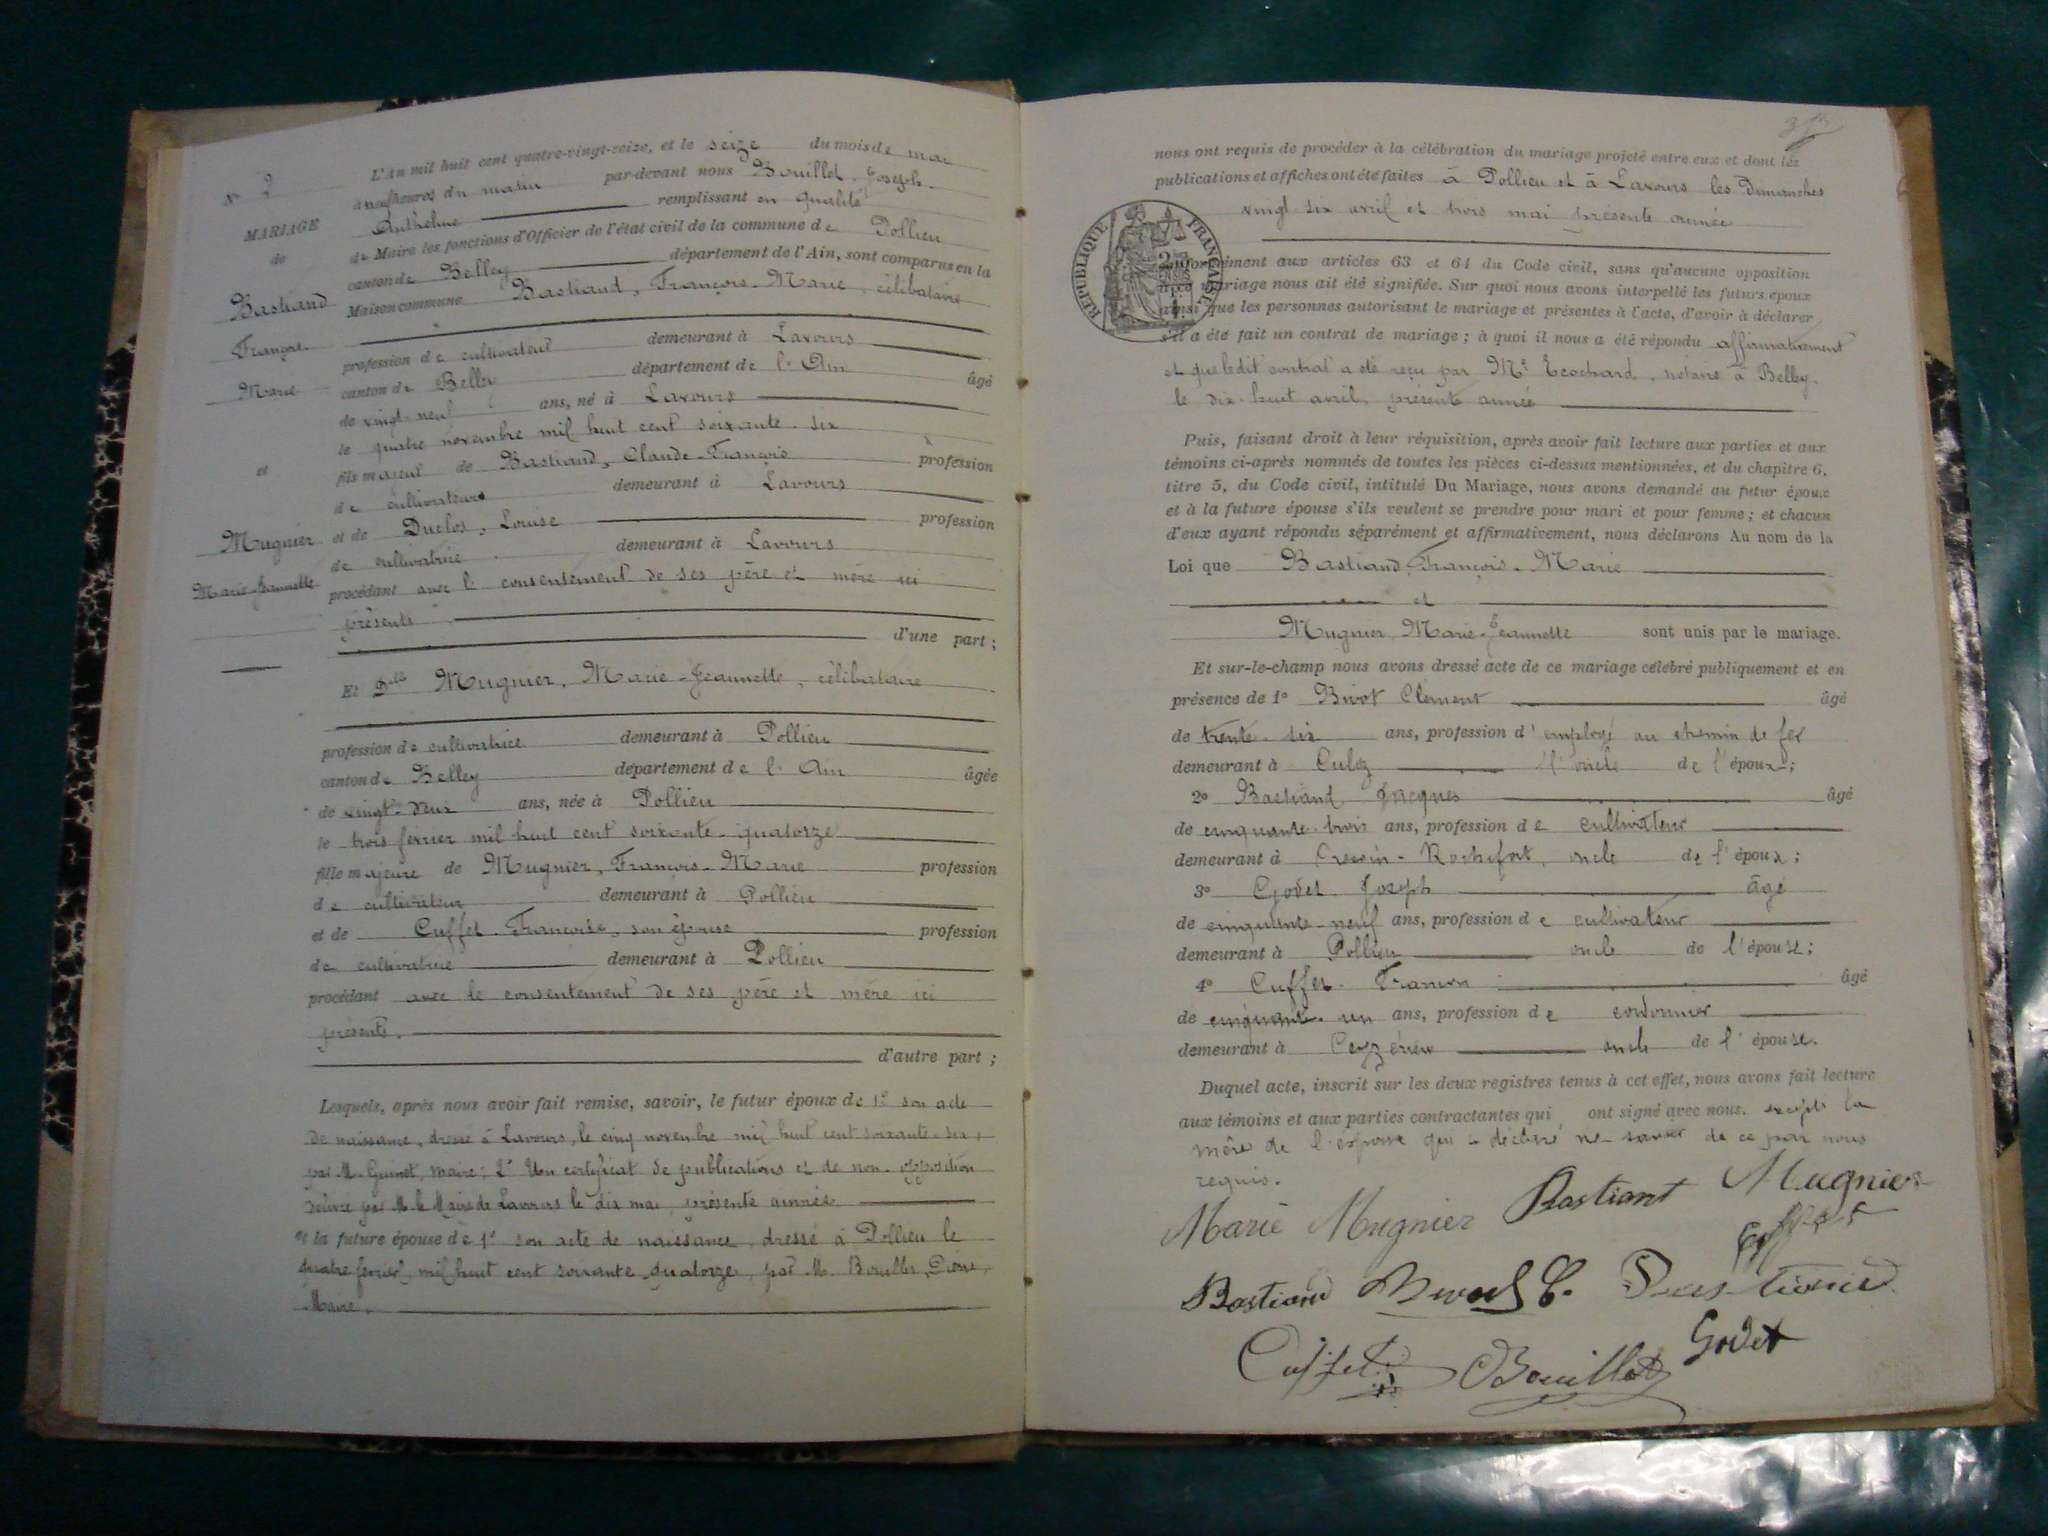 N° 2
MARIAGE
de
Bastiand
François-
Marie
et
Mugnier
Marie-Jeannette
L'An mil huit cent quatre-vingt-seize, et le seize du mois de mai
à neuf heures du matin par-devant nous Bouillet Joseph-
Anthelme remplissant en qualité
de Maire les fonctions d'Officier de l'état civil de la commune de Pollieu
canton de Belley département de l'Ain, sont comparus en la
Maison commune Bastiand, François-Marie, célibataire
profession de cultivateur demeurant à Lavours
canton de Belley département de l'Ain âgé
de vingt-neuf ans, né à Lavours
le quatre novembre mil huit cent soixante-six
fils majeur de Bastiand, Claude-François profession
de cultivateur demeurant à Lavours
et de Duclos, Louise profession
de cultivatrice demeurant à Lavours
procédant avec le consentement de ses père et mère ici
présents
d'une part ;
Et Dlle Mugnier, Marie-Jeannette, célibataire
profession de cultivatrice demeurant à Pollieu
canton de Belley département de l'Ain âgée
de vingt-deux ans, née à Pollieu
le trois février mil huit cent soixante-quatorze
fille majeure de Mugnier, François-Marie profession
de cultivateur demeurant à Pollieu
et de Cuffet Françoise, son épouse profession
de cultivatrice demeurant à Pollieu
procédant avec le consentement de ses père et mère ici
présents.
d'autre part ;
Lesquels, après nous avoir fait remise, savoir, le futur époux de 1° son acte
de naissance, dressé à Lavours, le cinq novembre mil huit cent soixante-six,
par M. Guinet, maire ; 2° Un certificat de publications et de non-opposition
délivré par M. le Maire de Lavours le dix mai, présente année
et la future épouse de 1° son acte de naissance, dressé à Pollieu le
quatre février, mil huit cent soixante quatorze, par M. Bouillet, Pierre,
Maire.
nous ont requis de procéder à la célébration du mariage projeté entre eux et dont les
publications et affiches ont été faites à Pollieu et à Lavours les dimanches
vingt-six avril et trois mai présente année
RÉPUBLIQUE FRANÇAISE
conformément aux articles 63 et 64 du Code civil, sans qu'aucune opposition
mariage nous ait été signifiée. Sur quoi nous avons interpellé les futurs époux
ainsi que les personnes autorisant le mariage et présentes à l'acte, d'avoir à déclarer
s'il a été fait un contrat de mariage ; à quoi il nous a été répondu affirmativement
et que ledit contrat a été reçu par Me Ecochard, notaire à Belley,
le dix-huit avril, présente année
Puis, faisant droit à leur réquisition, après avoir fait lecture aux parties et aux
témoins ci-après nommés de toutes les pièces ci-dessus mentionnées, et du chapitre 6,
titre 5, du Code civil, intitulé Du Mariage, nous avons demandé au futur époux
et à la future épouse s'ils veulent se prendre pour mari et pour femme ; et chacun
d'eux ayant répondu séparément et affirmativement, nous déclarons Au nom de la
Loi que Bastiand, François-Marie
et
Mugnier, Marie-Jeannette sont unis par le mariage.
Et sur-le-champ nous avons dressé acte de ce mariage célébré publiquement et en
présence de 1° Bivot Clément âgé
de trente-six ans, profession d'employé au chemin de fer
demeurant à Culoz oncle de l'époux ;
2° Bastiand Jacques âgé
de cinquante-trois ans, profession de cultivateur
demeurant à Rochefort, oncle de l'époux ;
3° Godet Joseph âgé
de cinquante-neuf ans, profession de cultivateur
demeurant à Pollieu oncle de l'épouse ;
4° Cuffet âgé
de cinquante-un ans, profession de cordonnier
demeurant à Ceyzérieu oncle de l'épouse.
Duquel acte, inscrit sur les deux registres tenus à cet effet, nous avons fait lecture
aux témoins et aux parties contractantes qui ont signé avec nous, excepté la
mère de l'épouse qui a déclaré ne savoir de ce par nous
requis.
Marie Mugnier Bastiant Mugnier
Bastiand C. Bastiand
Cuffet Bouillet Godet